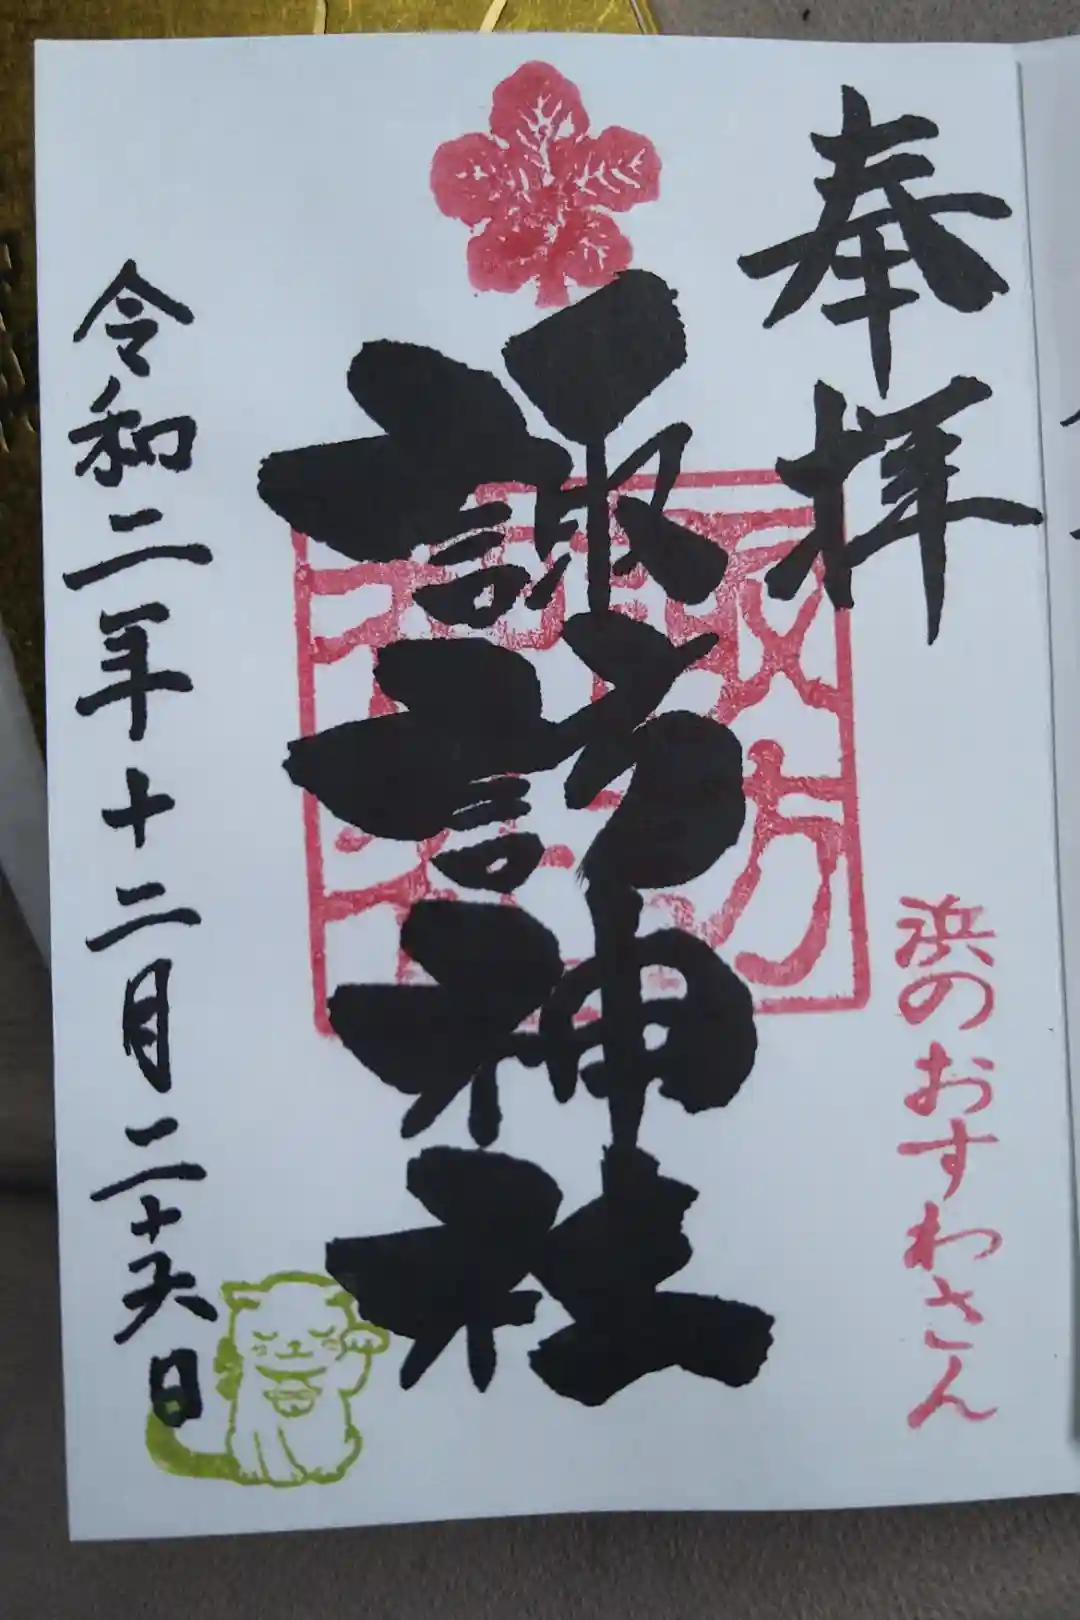 奉拝
浜のおすわさん
諏訪神社
令和二年十二月二十六日